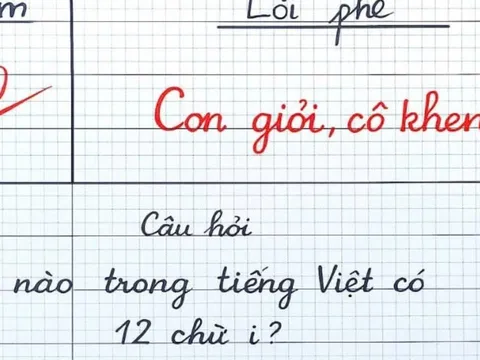 Lời phê
Con giỏi, cô khen
Câu hỏi
nào trong tiếng Việt có
12 chữ i?